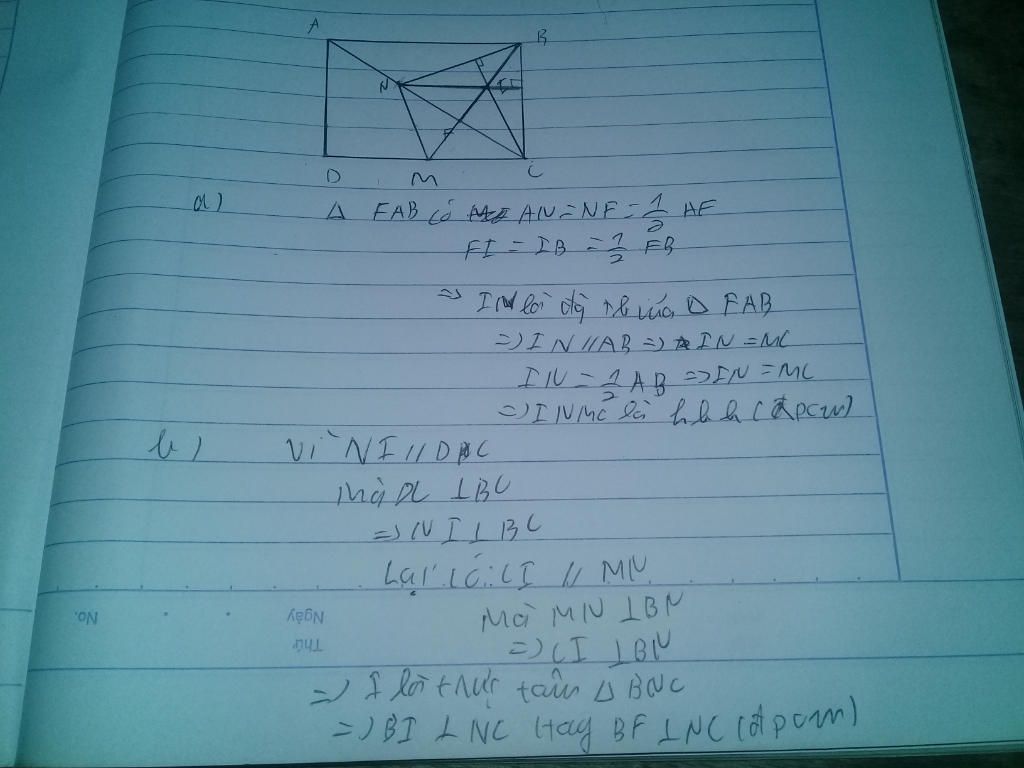 A
B
N
I
D
M
C
a)
Δ FAB có AN = NF = 1/2 AF
FI = IB = 1/2 FB
=> IN là đg tb của Δ FAB
=> IN // AB => IN = MC
IN = 1/2 AB => IN = MC
=> INMC là hbh (đpcm)
b) Vì NI // DC
mà DC ⊥ BC
=> NI ⊥ BC
Lại có: CI // MN
Mà MN ⊥ BN
=> CI ⊥ BN
=> I là trực tâm Δ BNC
=> BI ⊥ NC Hay BF ⊥ NC (đpcm)
No.
Ngày
Thứ